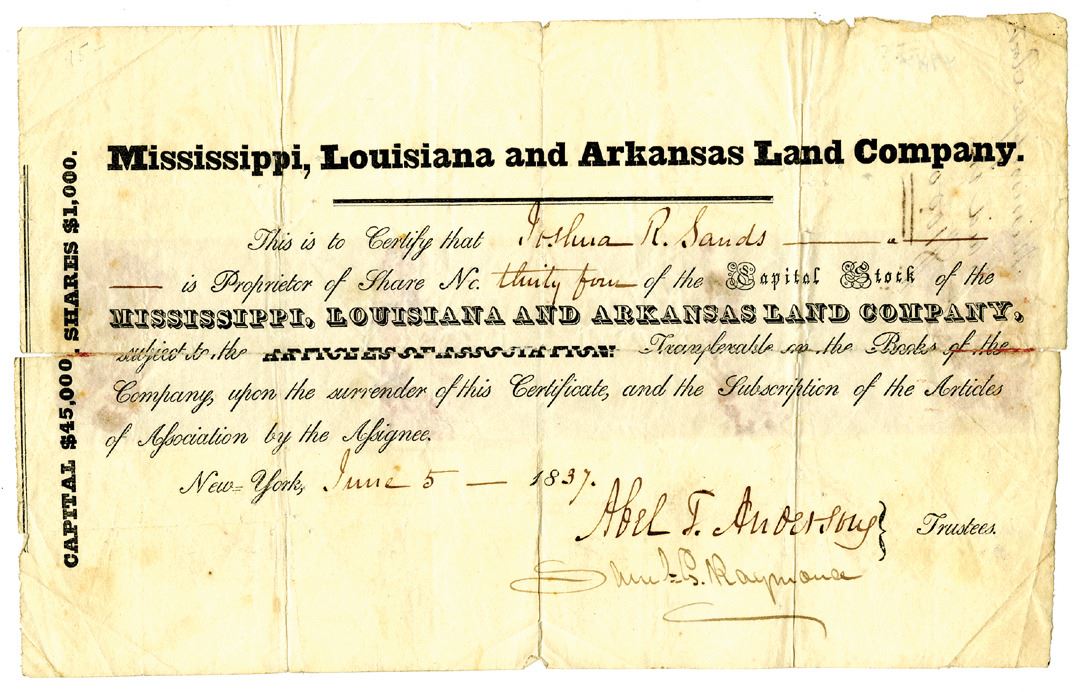 Mississippi, Louisiana and Arkansas Land Company.
CAPITAL $45,000, SHARES $1,000.
This is to Certify that Joshua R. Sands
is Proprietor of Share No. thirty four of the Capital Stock of the
MISSISSIPPI, LOUISIANA AND ARKANSAS LAND COMPANY,
subject to the ARTICLES OF ASSOCIATION: Transferable on the Books of the
Company, upon the surrender of this Certificate, and the Subscription of the Articles
of Association by the Assignee.
New-York, June 5 1837.
Abel T. Anderson } Trustees.
Saml G. Raymond